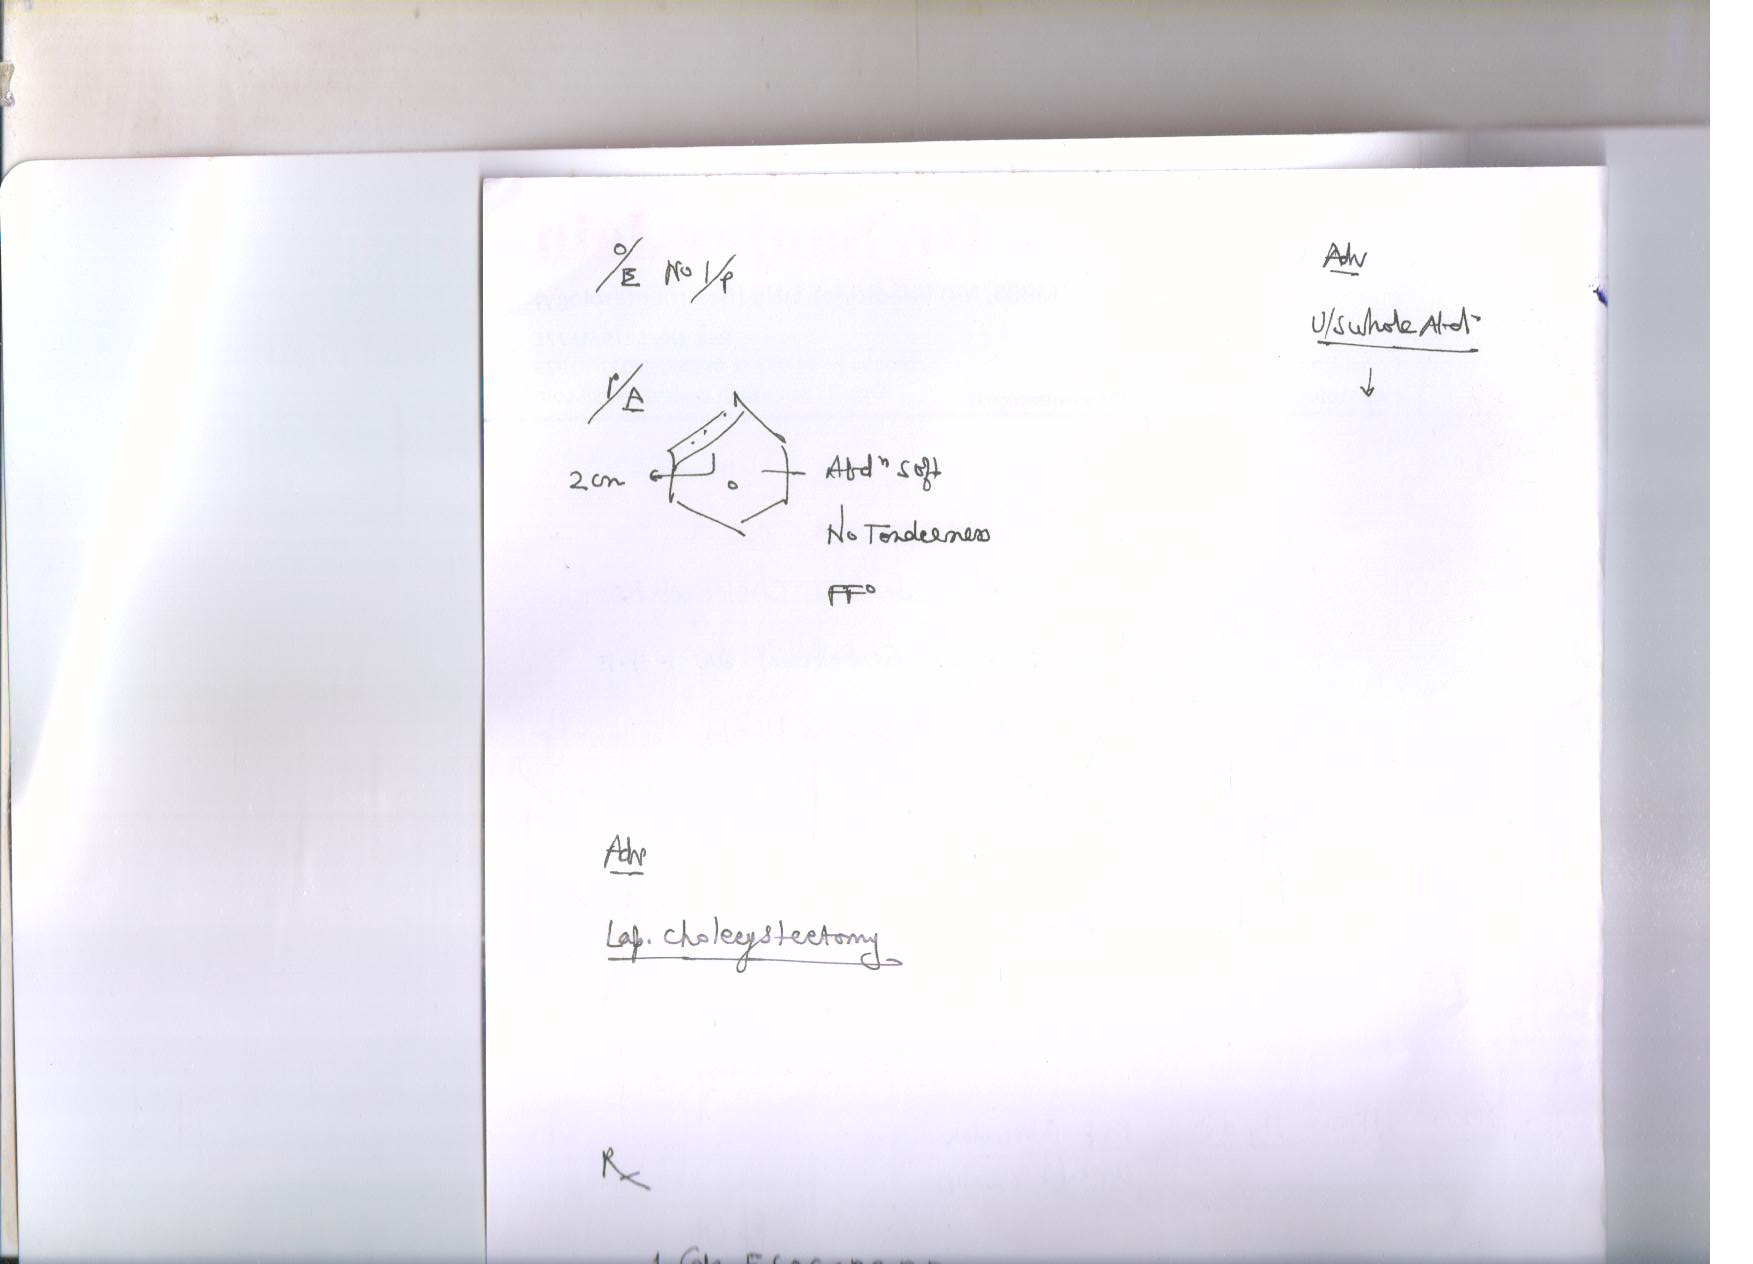 O/E No I/P
Adv
U/S whole Abdn
↓
P/A
2 cm
Abdn soft
No Tenderness
FF°
Adv
Lap. cholecystectomy
Rx
1 Cap